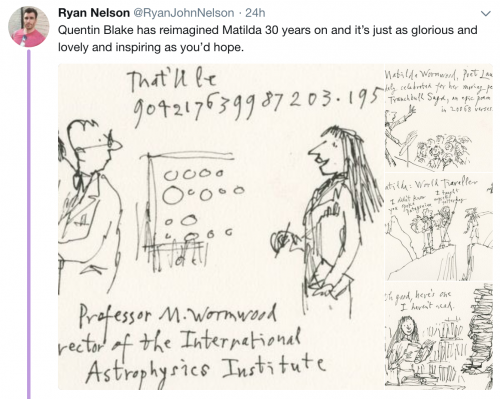 Ryan Nelson @RyanJohnNelson · 24h
Quentin Blake has reimagined Matilda 30 years on and it's just as glorious and
lovely and inspiring as you'd hope.
That'll be
904217639987203.195
Professor M. Wormwood
rector of the International
Astrophysics Institute
Matilda Wormwood, Poet Lau
celebrated for her moving po
Trunchbull Saga, an epic poem
in verses
tilda: World Traveller
I didn't know
you spoke
I thought
h good, here's one
I haven't read.